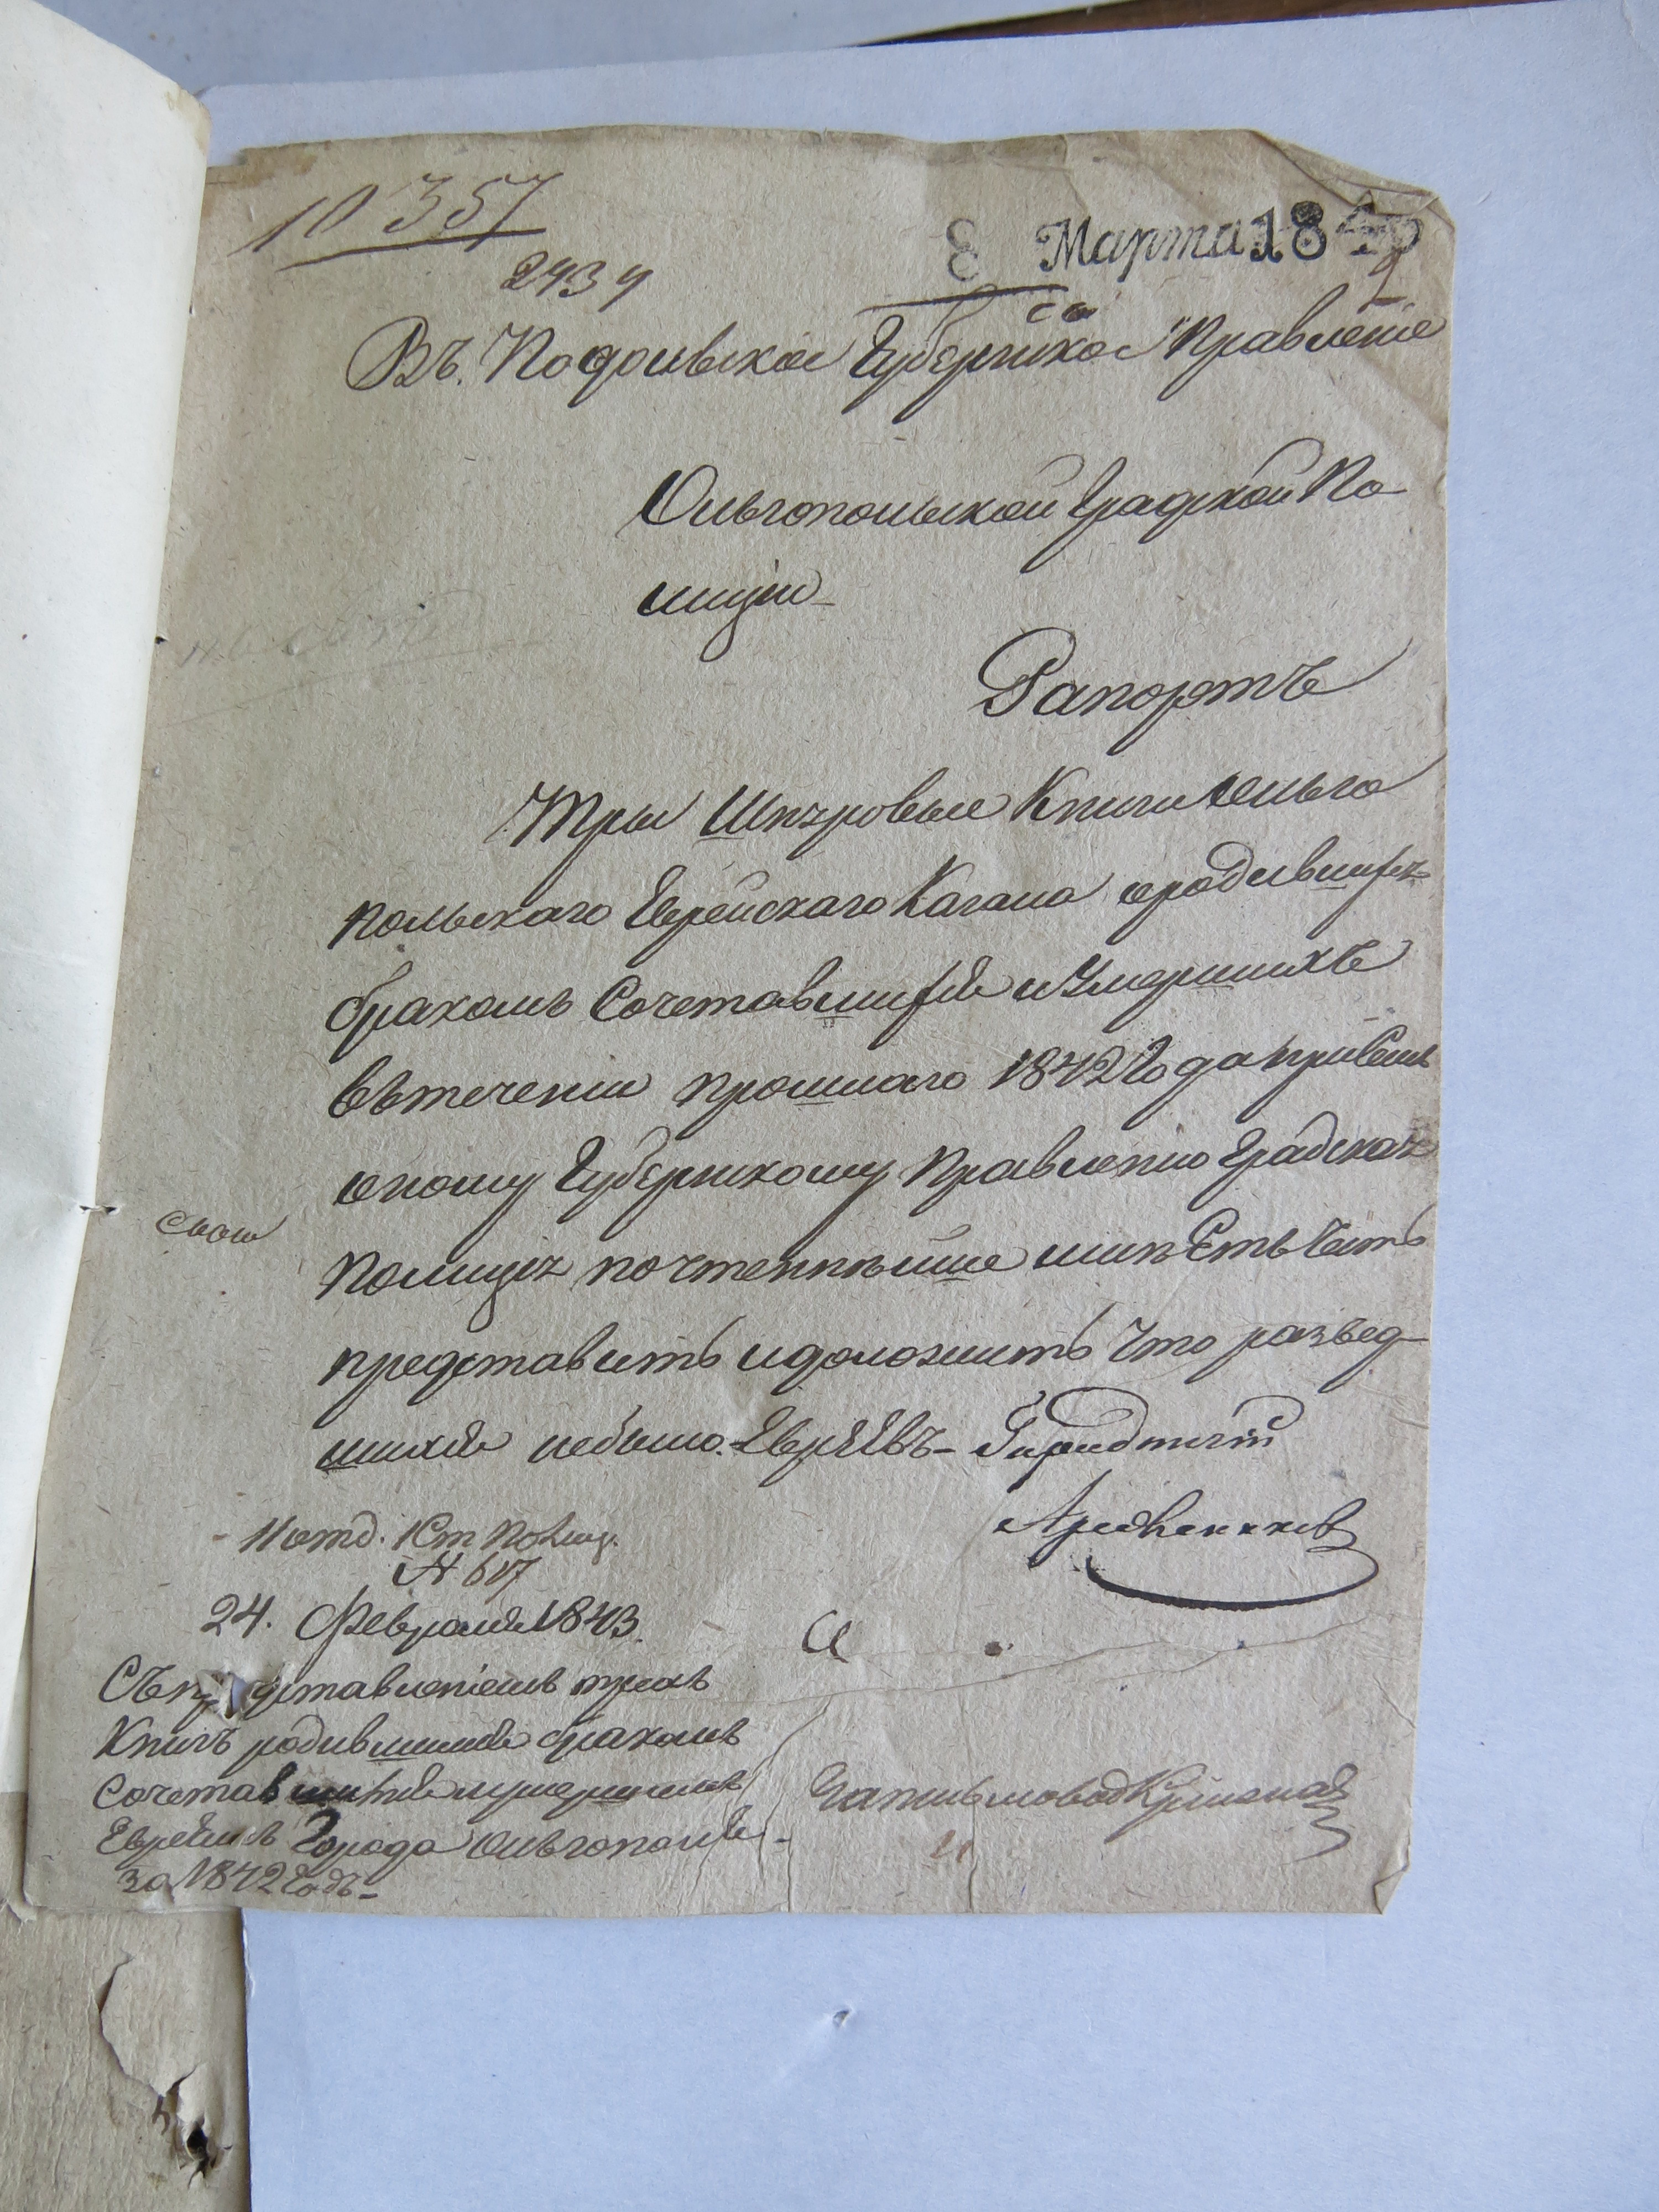 10357
2434
8 Марта 184
Въ Подольское Губернское Правленіе
Ольгопольской Градской По
лиціи
Рапортъ
Три Шнуровые Книги Ольго
польскаго Еврейскаго Кагала ородившихъ
бракомъ Сочетавшихся иУмершихъ
вътеченіи прошлаго 1842 Года присемъ
оному Губернскому Правленію Градская
Полиція почтеннѣйше имѣетъ Честь
представить идоложить Что развед-
шихся небыло. Евреевъ-
11 отд. 1 Ст
№ 617
24. Февраля 1843.
Съпредставленіемъ трехъ
Книгъ родившихся бракомъ
Сочетавшихся иумершихъ
Евреевъ Города Ольгополя-
за 1842 Годъ-